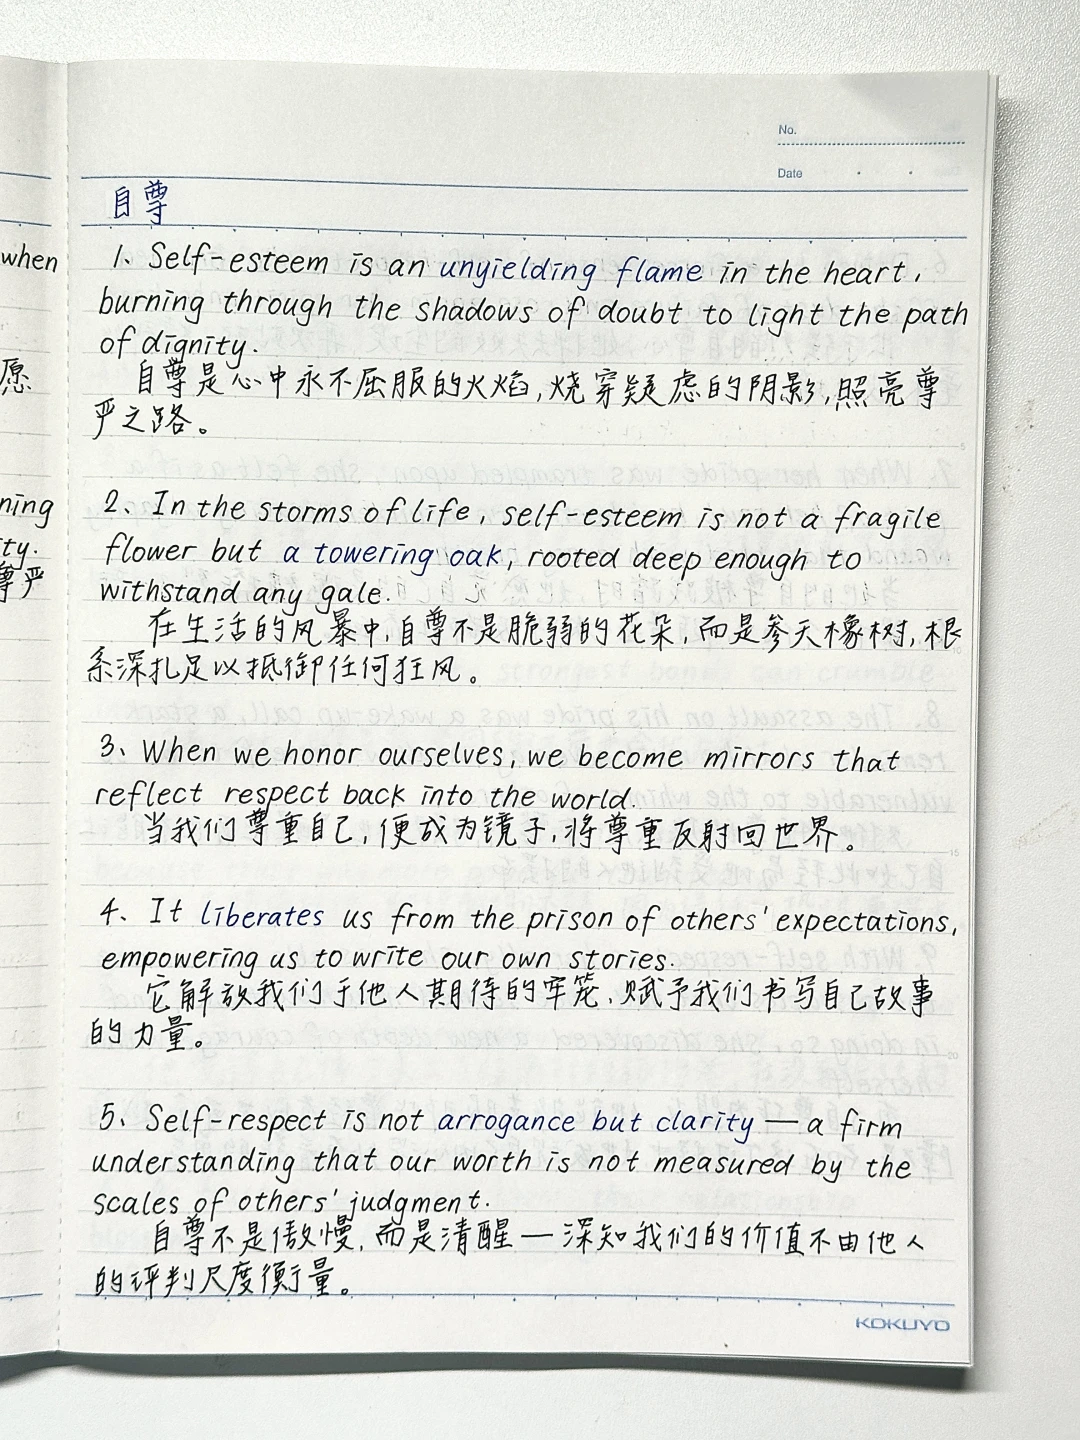 No.
Date
自尊
when
1、Self-esteem is an unyielding flame in the heart,
burning through the shadows of doubt to light the path
of dignity.
愿
自尊是心中永不屈服的火焰,烧穿疑虑的阴影,照亮尊
严之路。
ning
2、In the storms of life, self-esteem is not a fragile
ty.
flower but a towering oak, rooted deep enough to
尊严
withstand any gale.
在生活的风暴中,自尊不是脆弱的花朵,而是参天橡树,根
系深扎足以抵御任何狂风。
3、When we honor ourselves, we become mirrors that
reflect respect back into the world.
当我们尊重自己,便成为镜子,将尊重反射回世界。
4、It liberates us from the prison of others' expectations,
empowering us to write our own stories.
它解放我们于他人期待的牢笼,赋予我们书写自己故事
的力量。
5、Self-respect is not arrogance but clarity — a firm
understanding that our worth is not measured by the
scales of others' judgment.
自尊不是傲慢,而是清醒—深知我们的价值不由他人
的评判尺度衡量。
KOKUYO